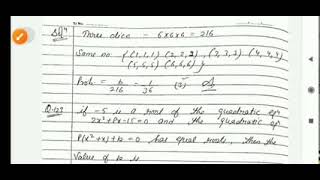 Three dice - 6x6x6 = 216
Same no. {(1,1,1) (2,2,2), (3,3,3) (4,4,4)
(5,5,5) (6,6,6)}
Prob. = 6/216 = 1/36 (3)
If -5 is a root of the quadratic eqn
2x²+Px-15=0 and the quadratic eqn
P(x²+x)+k=0 has equal roots, then the
Value of k is